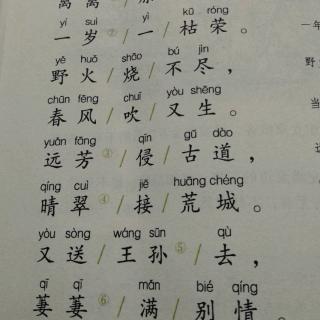 离离
yí suì yì kū róng
一岁②/一/枯荣。
yě huǒ shāo bú jìn
野火/烧/不尽，
chūn fēng chuī yòu shēng
春风/吹/又生。
yuǎn fāng qīn gǔ dào
远芳③/侵/古道，
qíng cuì jiē huāng chéng
晴翠④/接/荒城。
yòu sòng wáng sūn qù
又送/王孙⑤/去，
qī qī mǎn bié qíng
萋萋⑥/满/别情。
一年
野
当